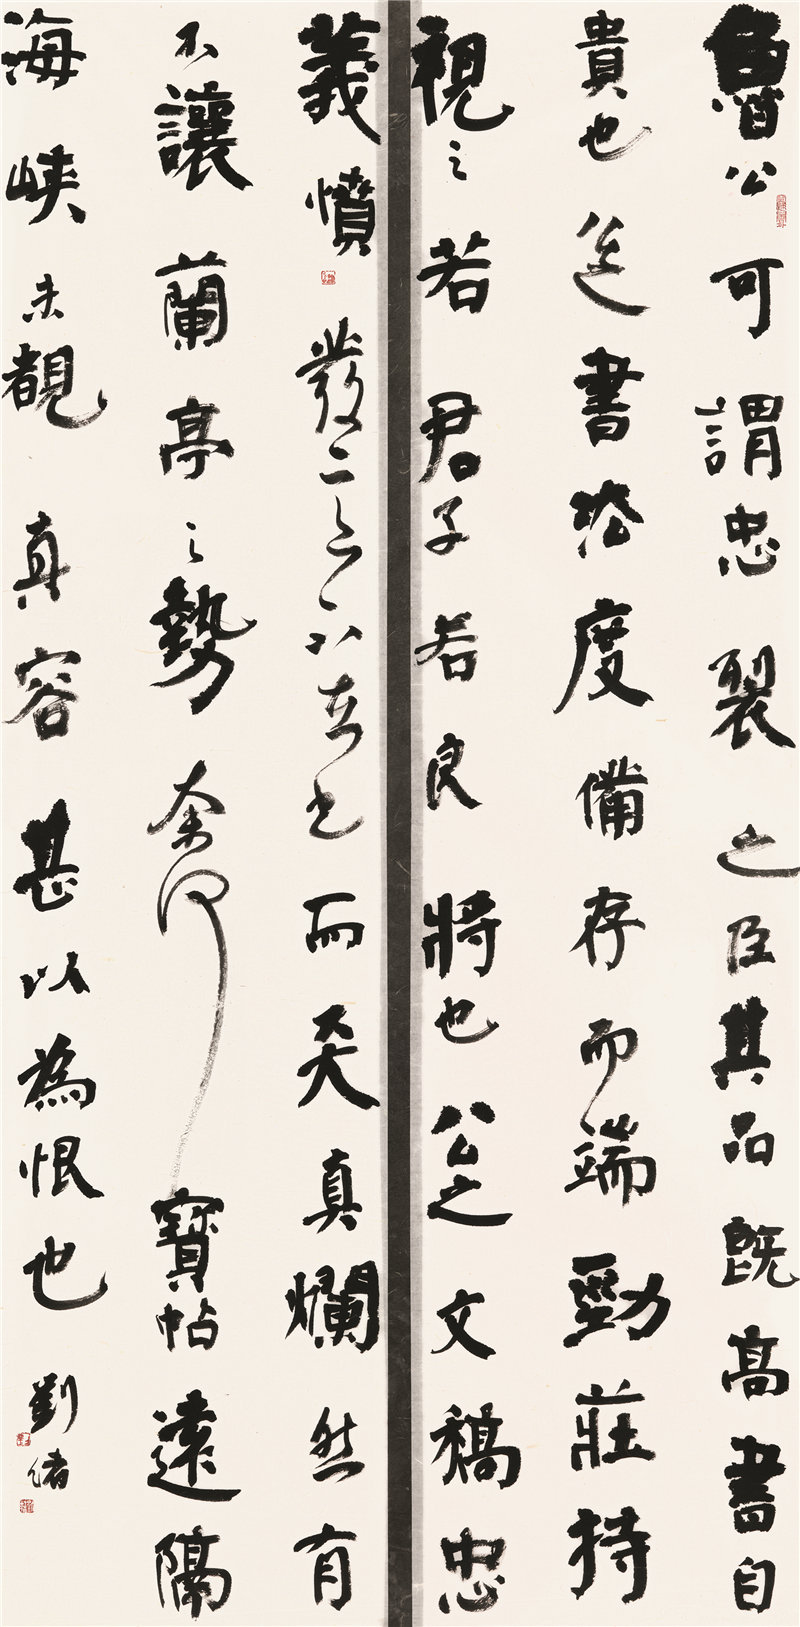 魯公可謂忠裂之臣其品既高書自
貴也公之書法度備存而端勁莊持
視之若君子若良將也公之文稿忠
義憤發而天真爛然有
不讓蘭亭之勢奈何寶帖遠隔
海峽未覩真容甚以為恨也 劉緒